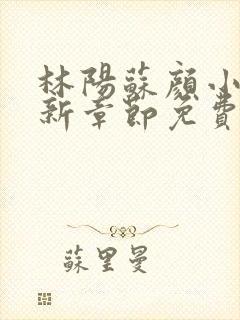 林陽蘇顏小
新章節免費
蘇里曼